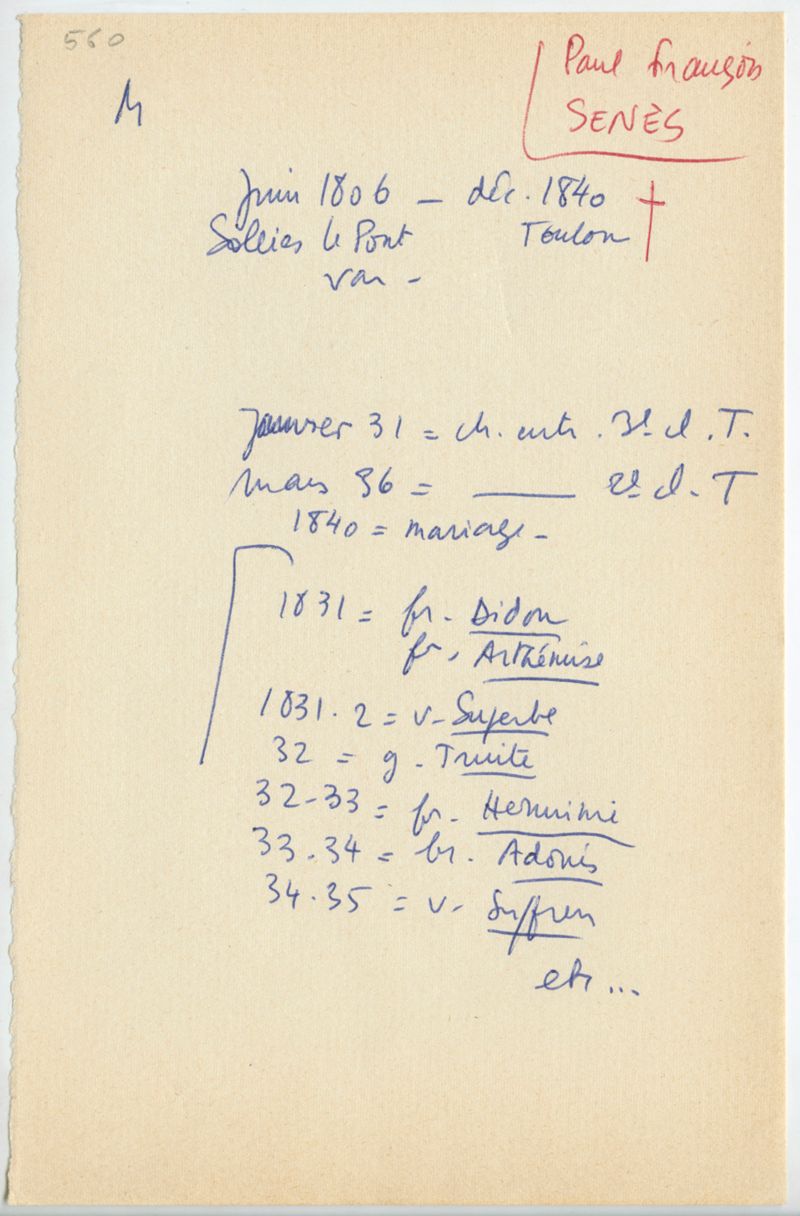 560
M
Paul François
SENÈS
Juin 1806 — déc. 1840 †
Solliès le Pont Toulon
Var -
Janvier 31 = ch. entr. 3e cl. T.
Mars 36 = ——— 2e cl. T
1840 = mariage -
1831 = fr. Didon
fr. Arthémise
1831.2 = v- Superbe
32 = g - Truite
32-33 = fr. Hermimie
33.34 = br. Adonis
34.35 = v- Suffren
etc ...